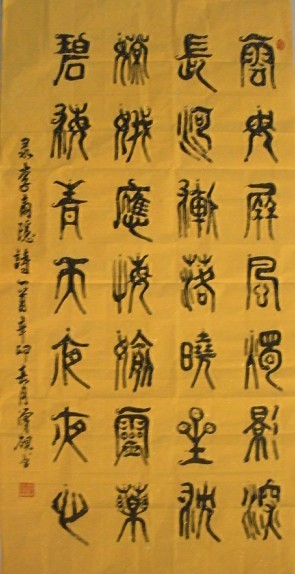 雲母屏風燭影深
長河漸落曉星沈
嫦娥應悔偷靈藥
碧海青天夜夜心
录李商隐詩一首辛卯春月书